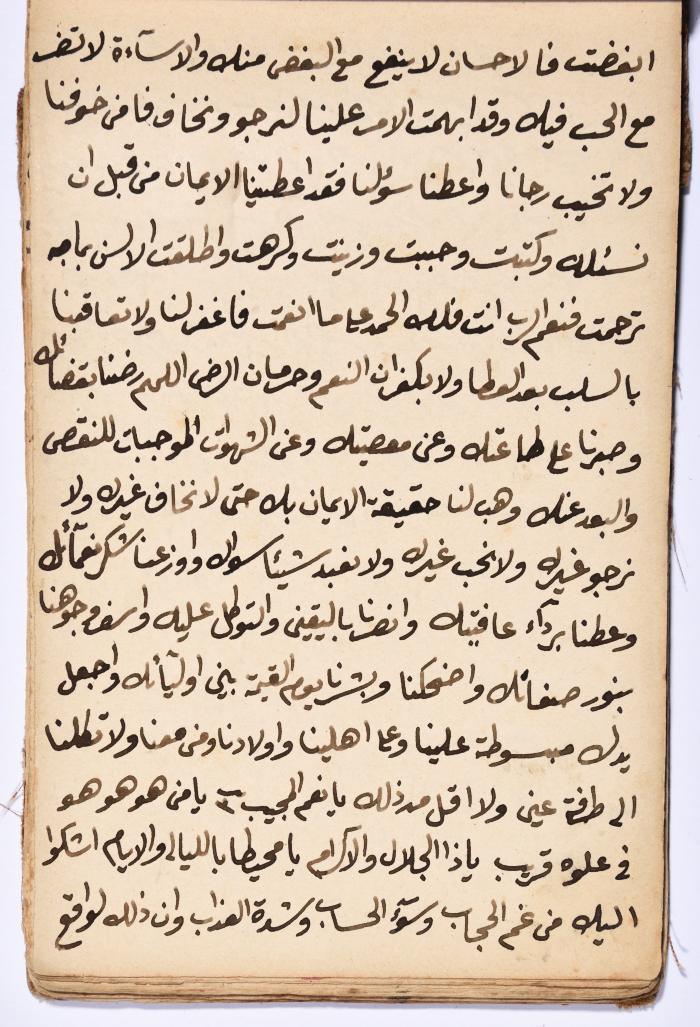 ابغضت فالاحسان لا ينفع مع البغض منك والاسآءة لا تضر
مع الحب فيك وقد ابهمت الامر علينا لنرجو ونخاف فامن خوفنا
ولا تخيب رجانا واعطنا سؤلنا فقد اعطيتنا الايمان من قبل ان
نسئلك وكتبت وحببت وزينت وكرهت واطلقت الالسن بما به
ترجمت فنعم الرب انت فلك الحمد على ما انعمت فاغفر لنا ولا تعاقبنا
بالسلب بعد العطا ولا بكفران النعم وحرمان الرضى اللهم رضنا بقضائك
وصبرنا على طاعتك وعن معصيتك وعن الشهوات الموجبات للنقص
والبعد عنك وهب لنا حقيقة الايمان بك حتى لا نخاف غيرك ولا
نرجو غيرك ولا نحب غيرك ولا نعبد شيئا سواك واوزعنا شكر نعمآئك
وغطنا بردآء عافيتك وانصرنا باليقين والتوكل عليك واسفر وجوهنا
بنور صفاتك واضحكنا وبشرنا يوم القيمة بين اوليآئك واجعل
يدك مبسوطة علينا وعلى اهلينا واولادنا ومن معنا ولا تكلنا
الى طرفة عين ولا اقل من ذلك يا نعم المجيب ٣ يا من هو هو هو
في علوه قريب يا ذا الجلال والاكرام يا محيطا بالليالى والايام اشكوا
اليك من غم الحجاب وسوء الحساب وشدة العذاب وان ذلك لواقع